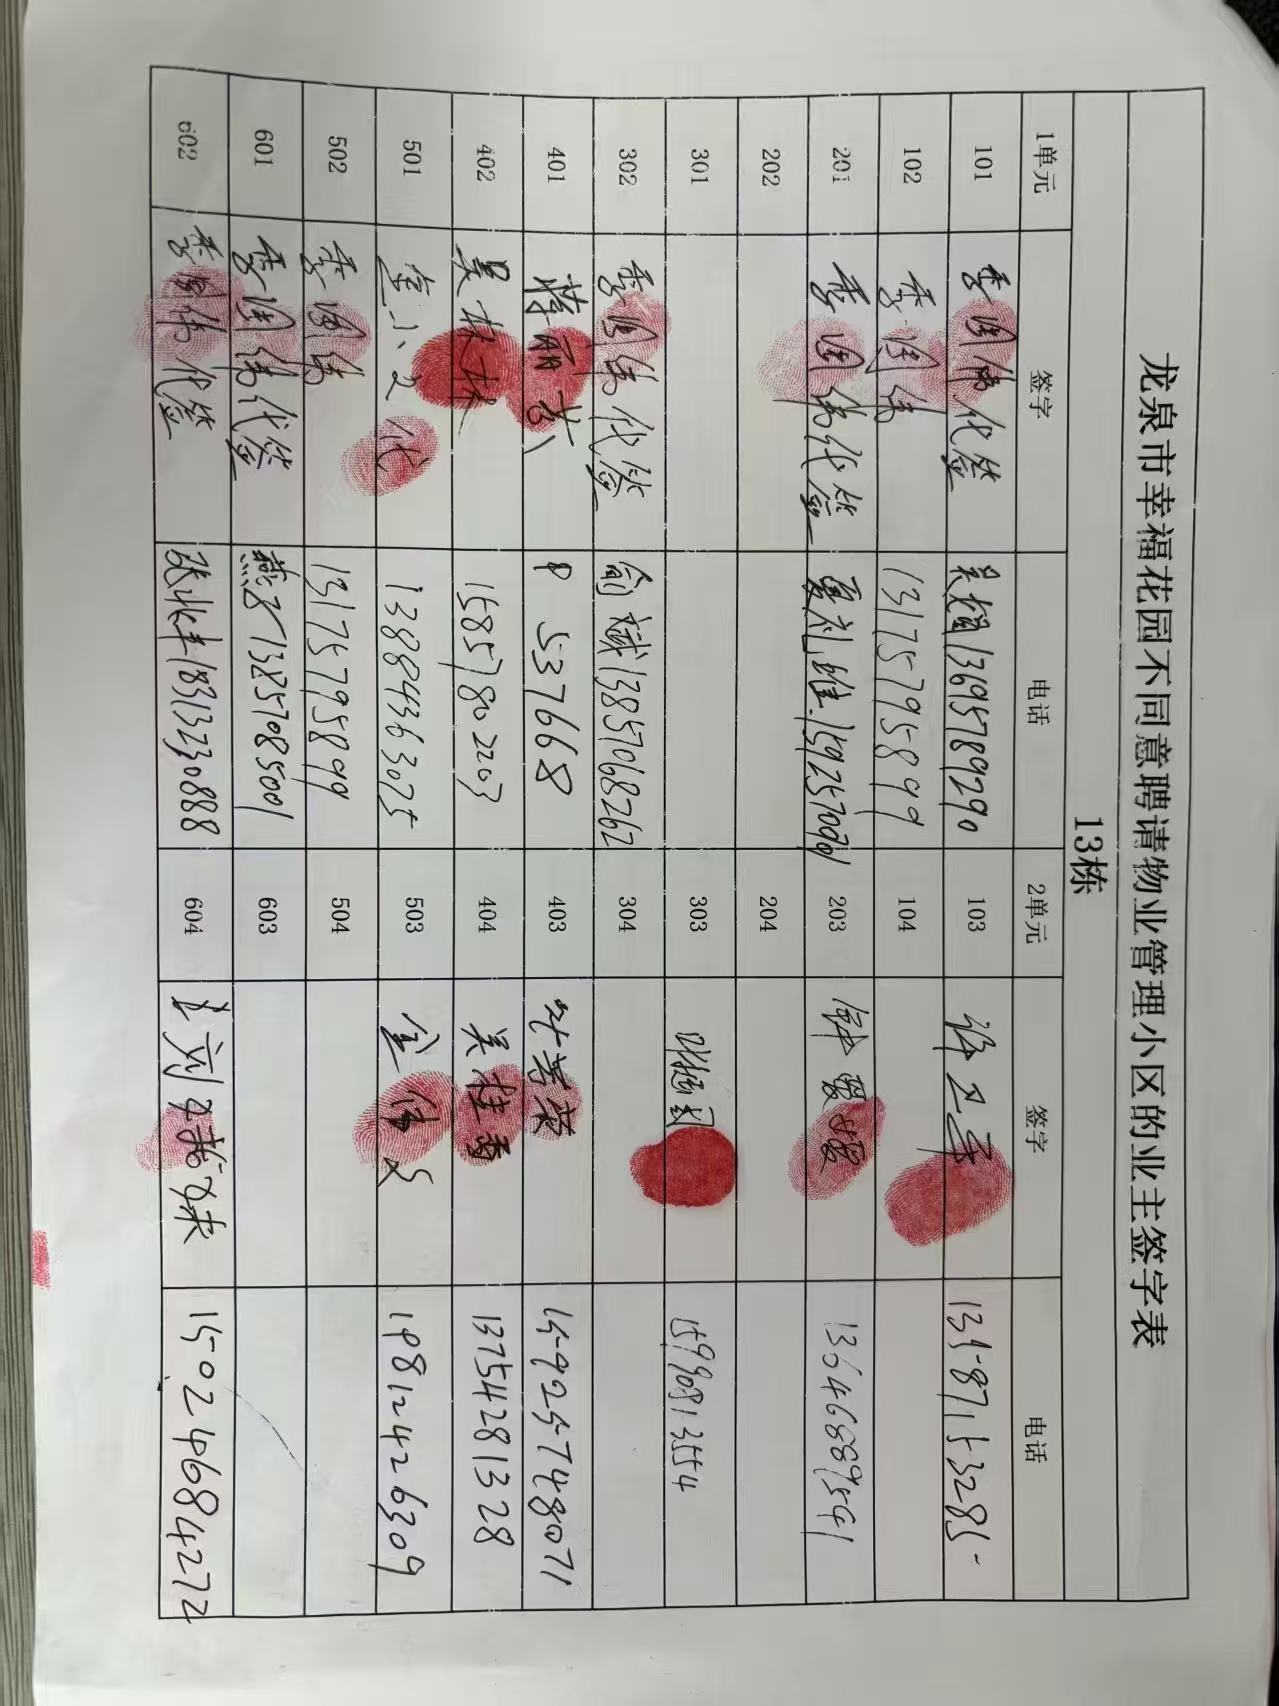 龙泉市幸福花园不同意聘请物业管理小区的业主签字表
13栋
1单元 签字 电话 2单元 签字 电话
101 季国伟代签 吴 13695789290 103 13587153285
102 季国伟 13175795899 104
201 季国伟代签 夏礼 203 钟爱媛
202 204
301 303 15990813554
302 季国伟代签 俞斌 13857068262 304
401 537668 403 叶芳荣 15925748071
402 吴林林 15857802203 404 吴桂香 13754281328
501 13884363025 503 金伟 19812426309
502 季国伟 13175795899 504
601 季国伟代签 燕子 13857085001 603
602 季国伟代签 18313230888 604 15024684272